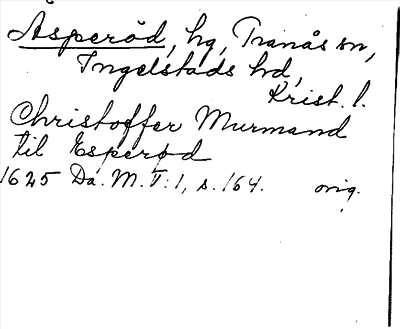 Äsperöd, hg, Tranås sn,
Ingelstads hd,
Krist. l.
Christoffer Murmand
til Esperød
1625 Da. M. V:1, s. 164. orig.